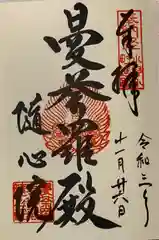 奉拝
令和三年
十一月廿八日
曼荼羅殿
随心院